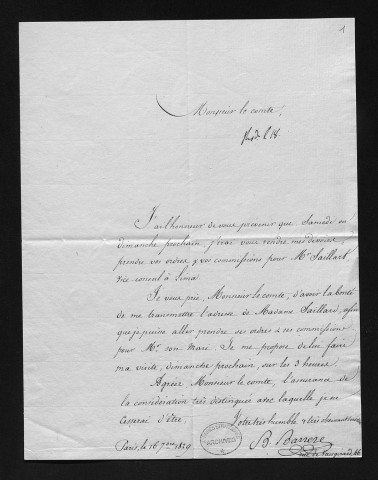 1
Monsieur le comte,
J'ai l'honneur de vous prévenir que Samedi ou
dimanche prochain j'irai vous rendre mes devoirs,
prendre vos ordres & vos commissions pour Mr Saillard
vice-consul à Lima.
Je vous prie, Monsieur le comte, d'avoir la bonté
de me transmettre l'adresse de Madame Saillard, afin
que je puisse aller prendre ses ordres & ses commissions
pour Mr. son mari. Je me propose de lui faire
ma visite, dimanche prochain, sur les 3 heures.
Agréez Monsieur le comte, l'assurance de
la considération très distinguée avec laquelle je ne
cesserai d'être,
Votre très humble & très obéissant
B. Barrere
Paris, le 16 7bre 1839
ARCHIVES
rue de Vaugirard,